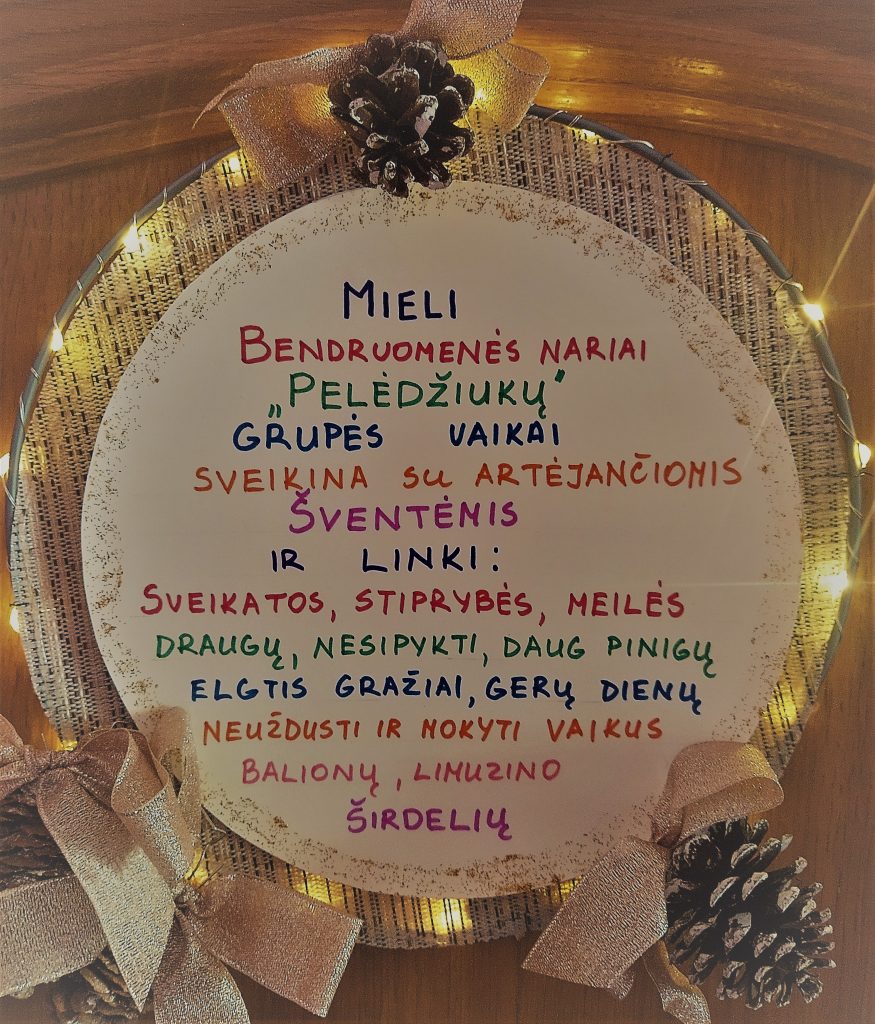 MIELI
BENDRUOMENĖS NARIAI
„PELĖDŽIUKŲ"
GRUPĖS VAIKAI
SVEIKINA SU ARTĖJANČIOMIS
ŠVENTĖMIS
IR LINKI:
SVEIKATOS, STIPRYBĖS, MEILĖS
DRAUGŲ, NESIPYKTI, DAUG PINIGŲ
ELGTIS GRAŽIAI, GERŲ DIENŲ
NEUŽDUSTI IR MOKYTI VAIKUS
BALIONŲ, LIMUZINO
ŠIRDELIŲ